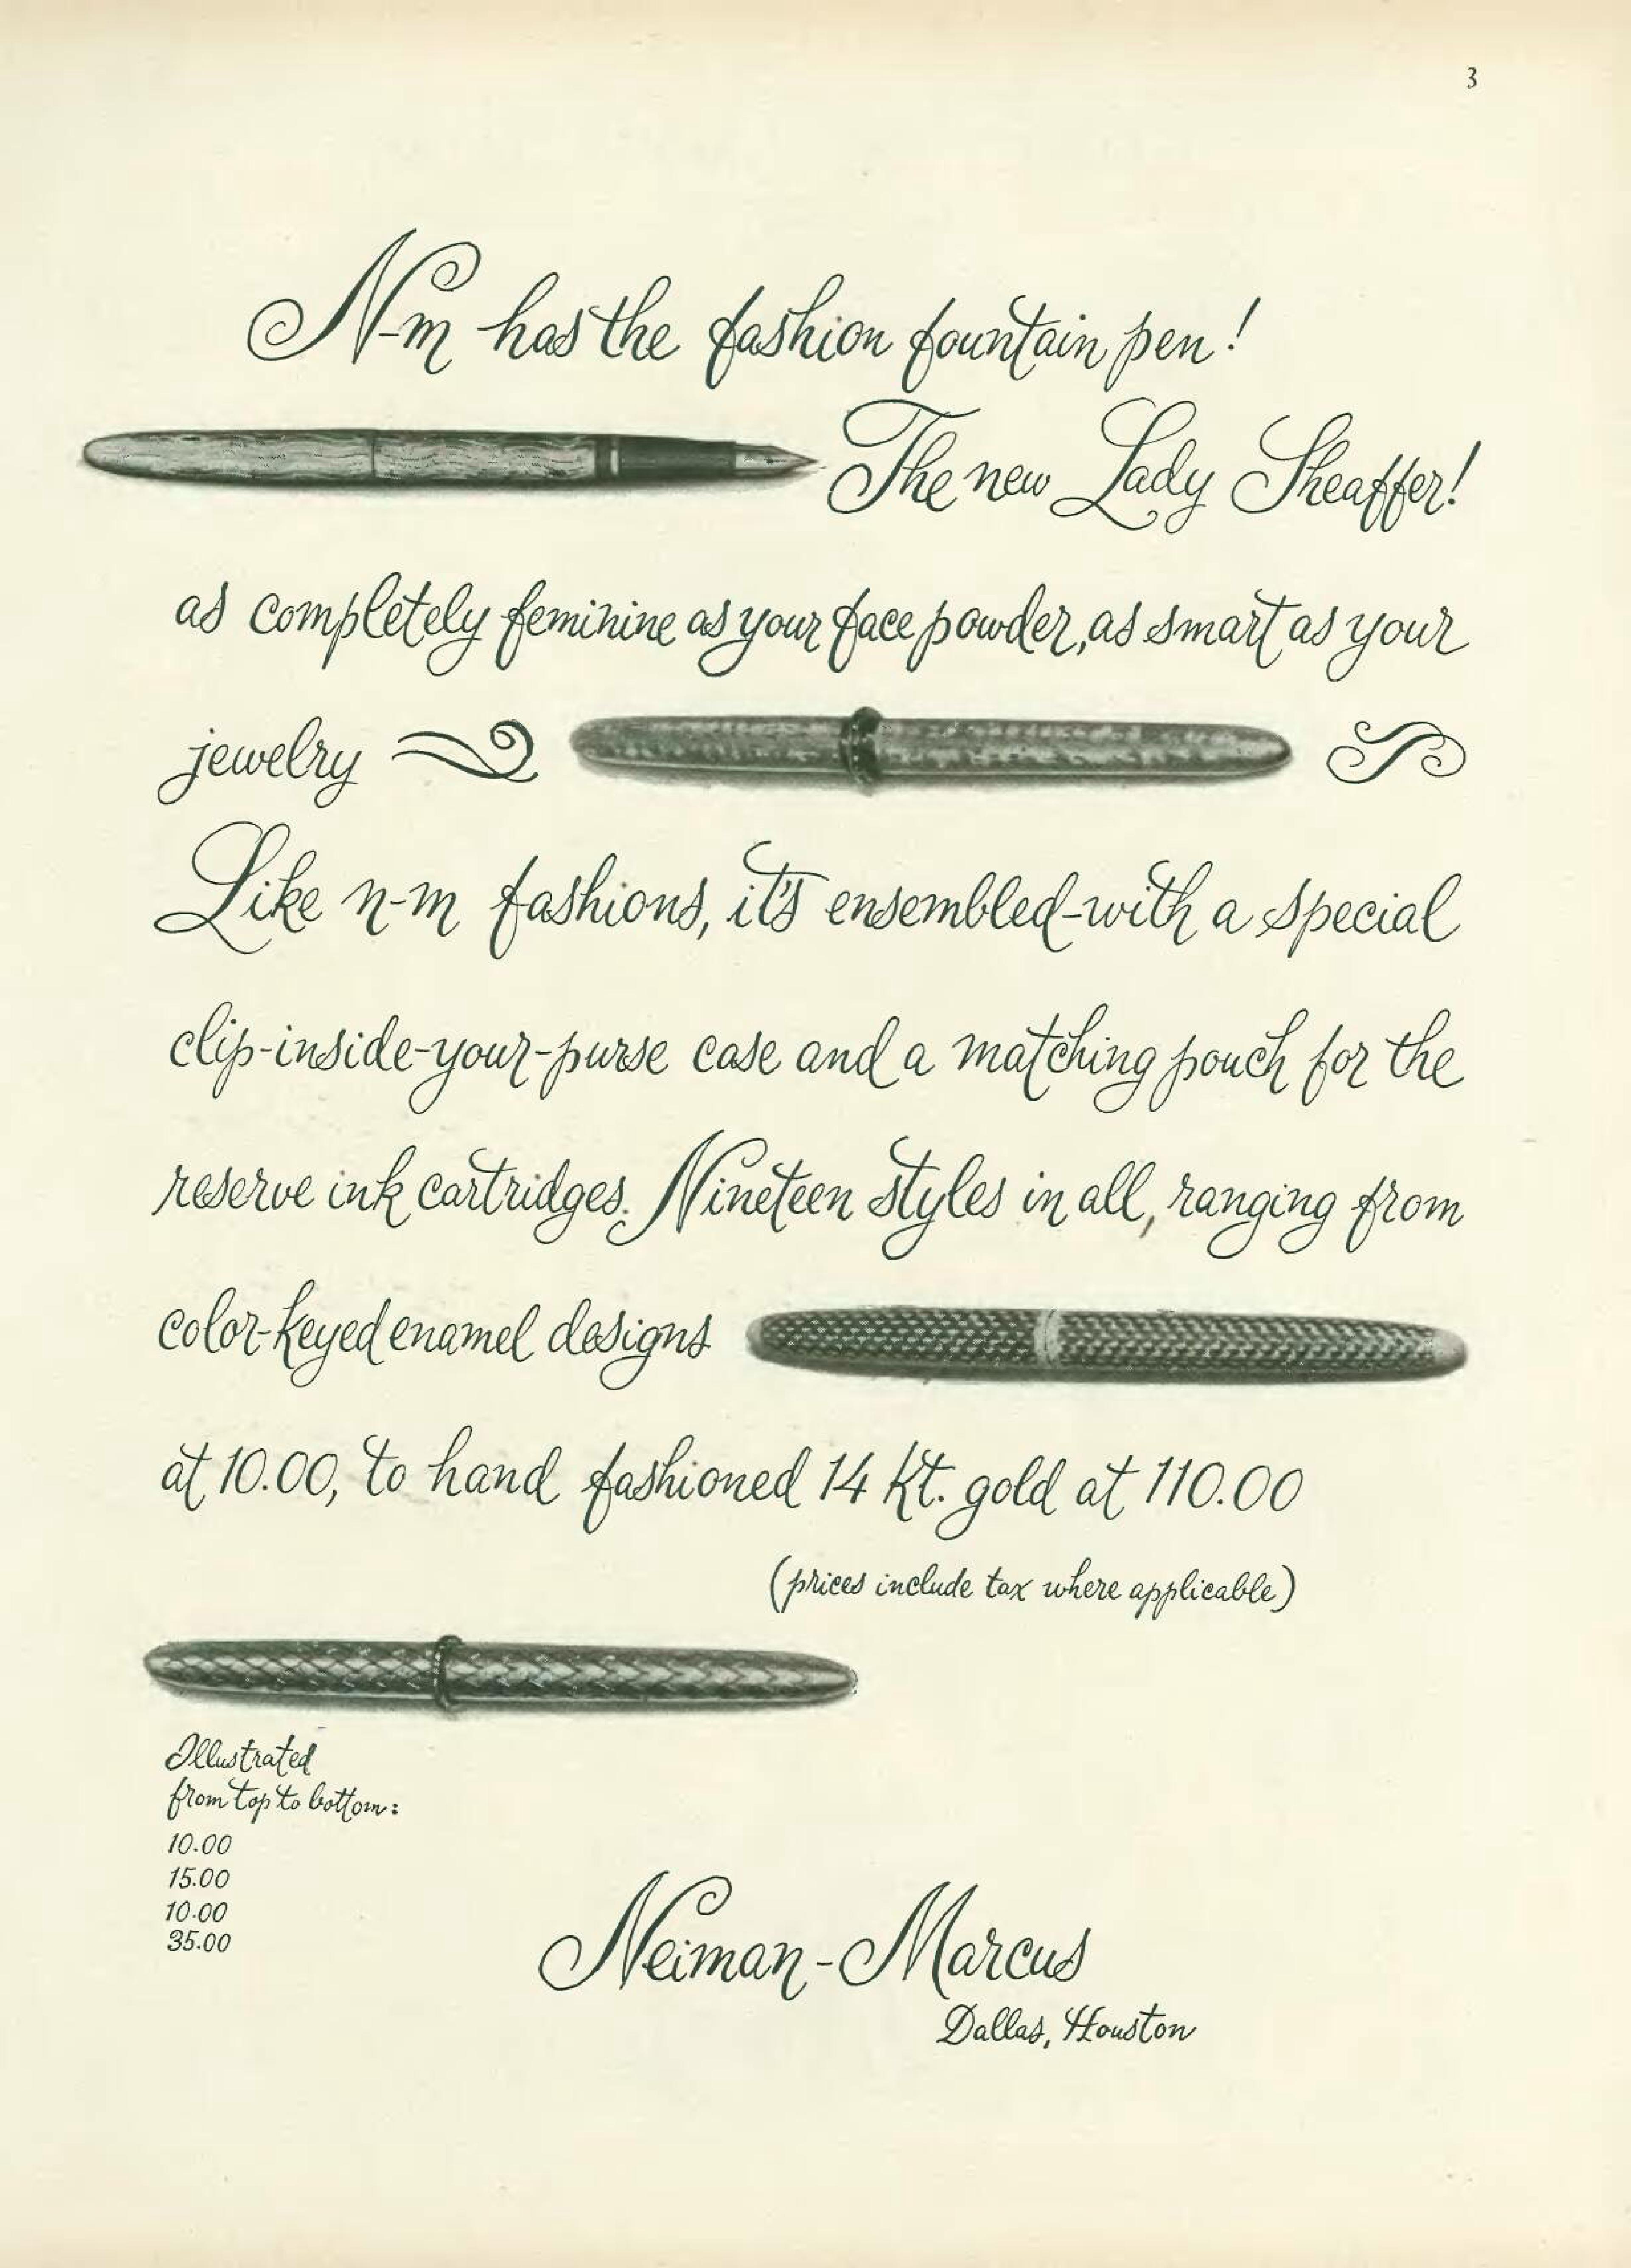 3
N-m has the fashion fountain pen!
The new Lady Sheaffer!
as completely feminine as your face powder, as smart as your
jewelry
Like n-m fashions, it's ensembled-with a special
clip-inside-your-purse case and a matching pouch for the
reserve ink cartridges. Nineteen styles in all, ranging from
color-keyed enamel designs
at 10.00, to hand fashioned 14 Kt. gold at 110.00
(prices include tax where applicable)
Illustrated
from top to bottom:
10.00
15.00
10.00
35.00
Neiman-Marcus
Dallas, Houston